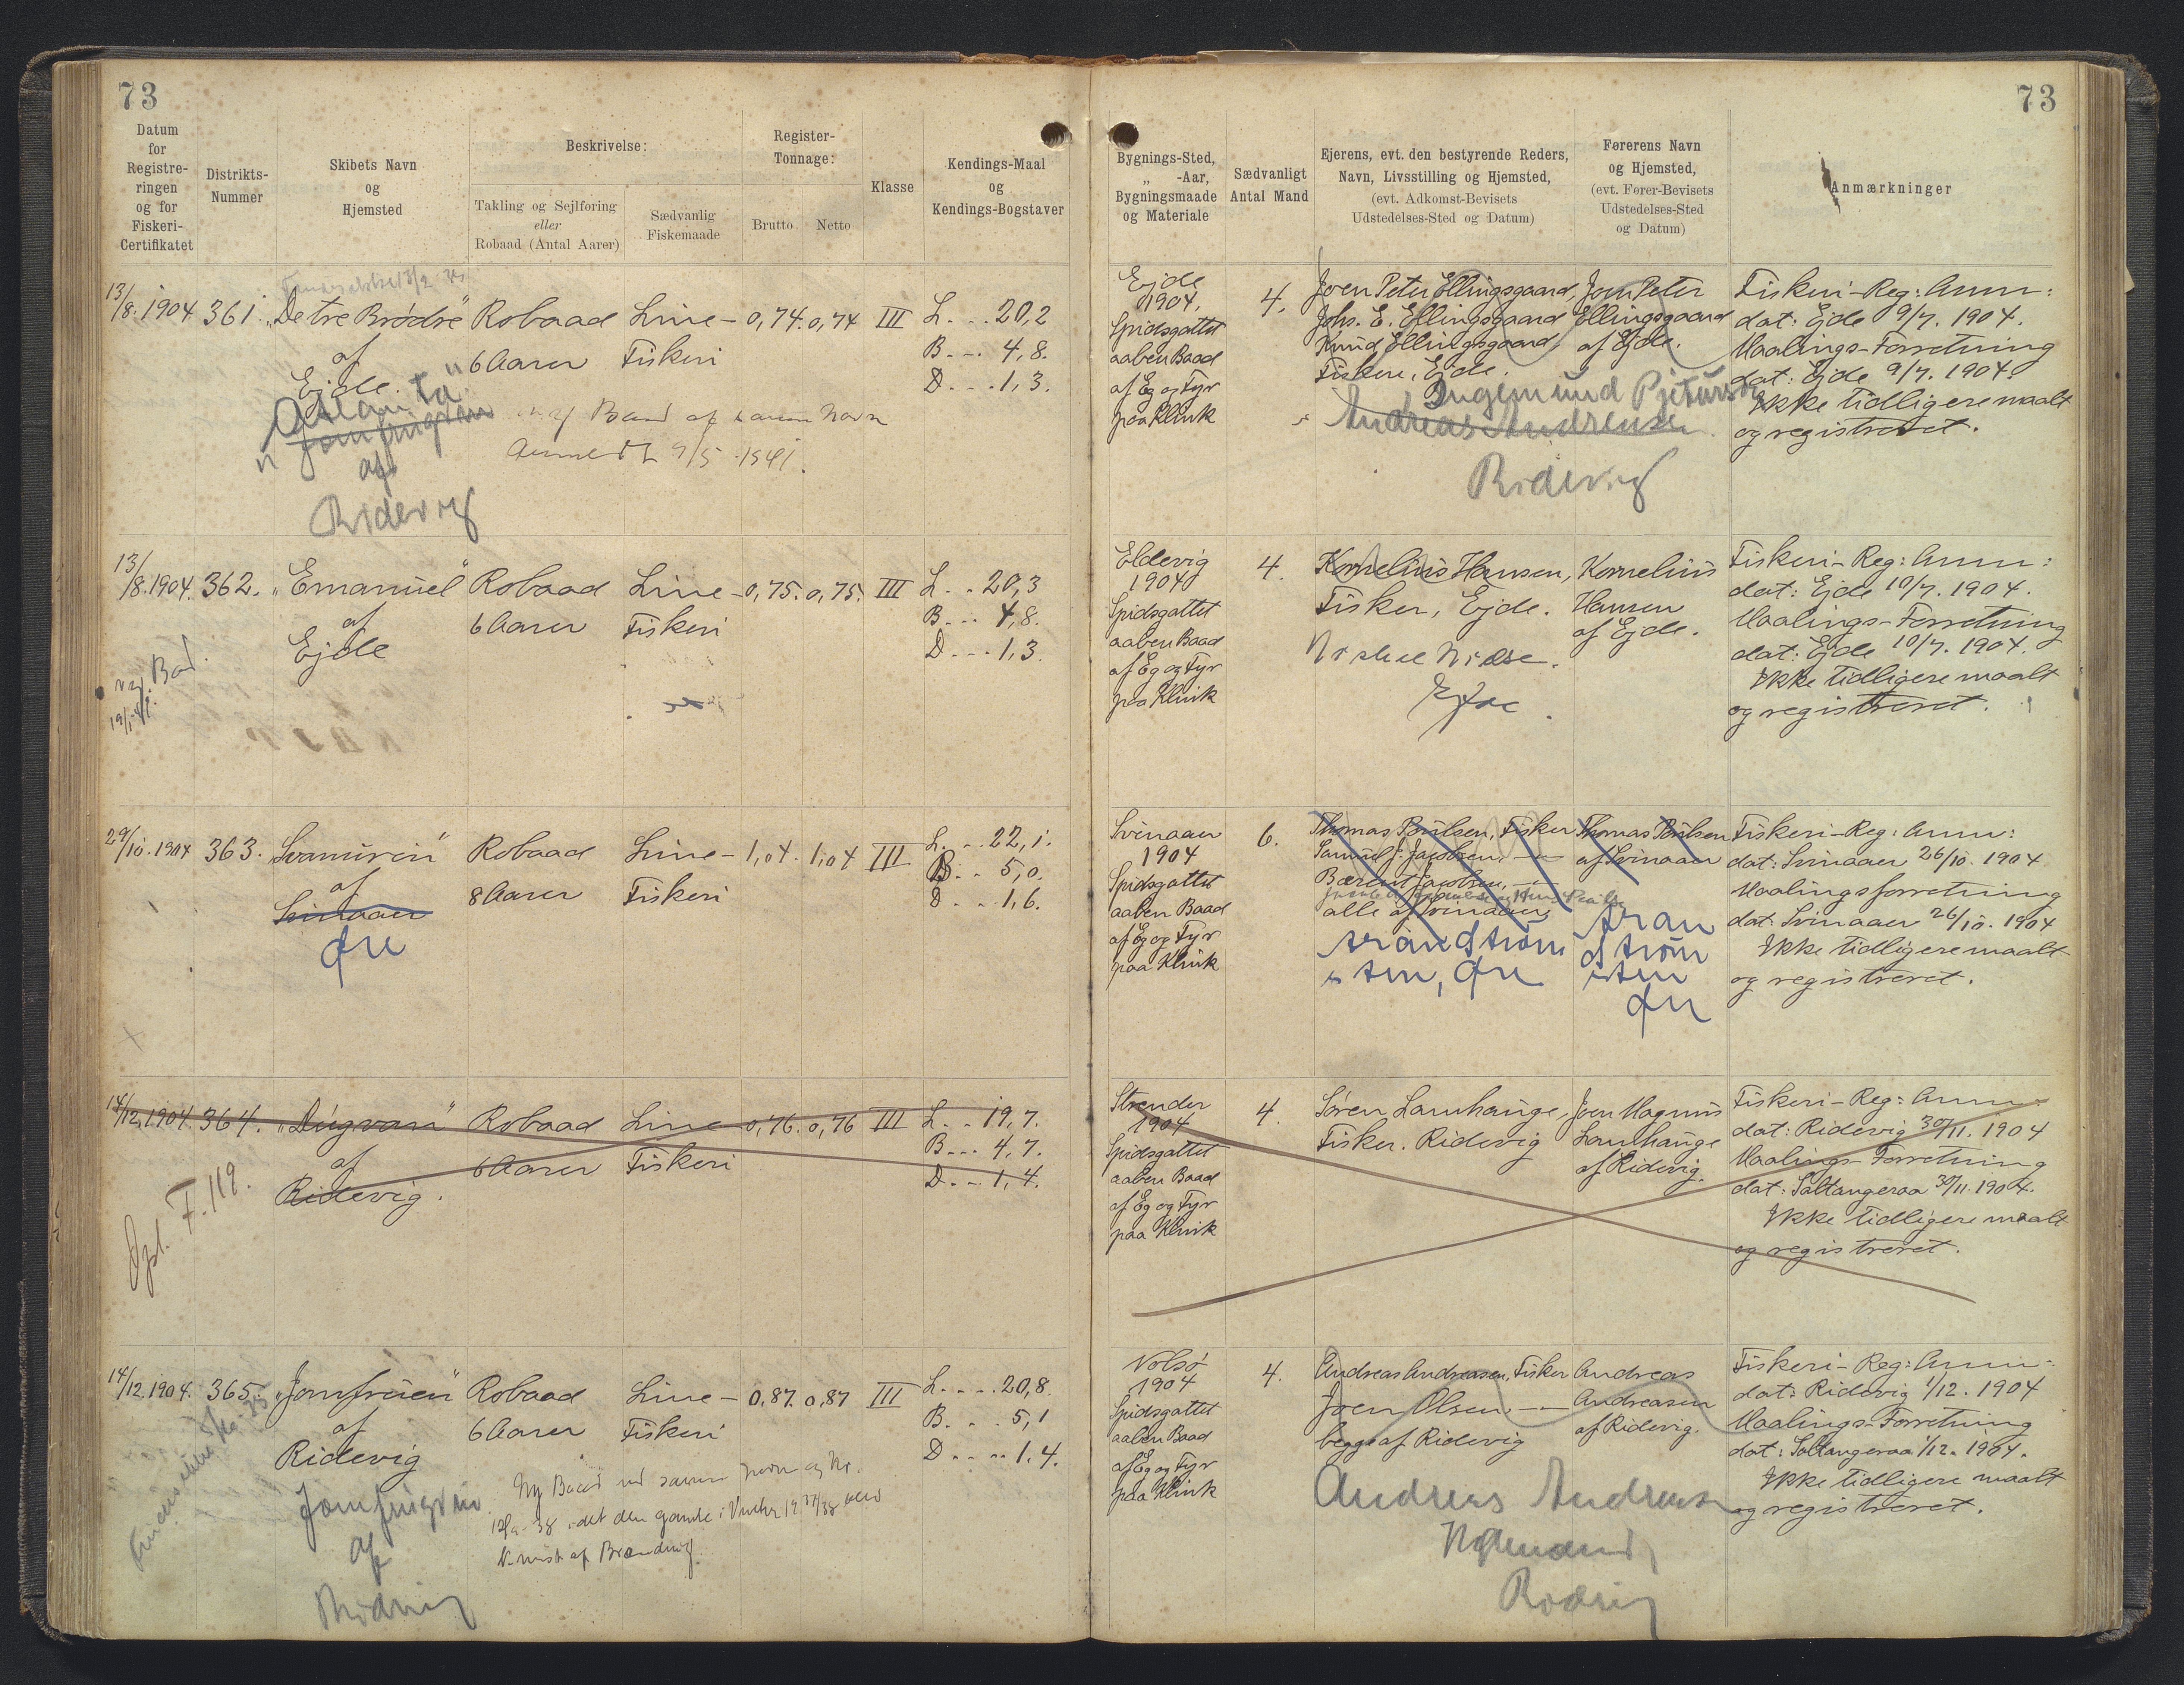 73
73
Datum
for
Registre-
ringen
og for
Fiskeri-
Certifikatet
Distrikts-
Nummer
Skibets Navn
og
Hjemsted
Beskrivelse:
Takling og Sejlføring
eller
Robaad (Antal Aarer)
Sædvanlig
Fiskemaade
Register-
Tonnage:
Brutto
Netto
Klasse
Kendings-Maal
og
Kendings-Bogstaver
Bygnings-Sted,
„ -Aar,
Bygningsmaade
og Materiale
Sædvanligt
Antal Mand
Ejerens, evt. den bestyrende Reders,
Navn, Livsstilling og Hjemsted,
(evt. Adkomst-Bevisets
Udstedelses-Sted og Datum)
Førerens Navn
og Hjemsted,
(evt. Fører-Bevisets
Udstedelses-Sted
og Datum)
Anmærkninger
13/8. 1904 361. „De tre Brødre" Robaad Line- 0,74. 0,74 III L. . . 20,2
af 6 Aarer Fiskeri B. . . 4,8.
Ejde. D. . . 1,3.
af
Ridevig
Ejde
1904.
Spidsgattet
aaben Baad
af Eg og Fyr
paa Klink
4.
Joen Peter Ellingsgaard,
Johs. E. Ellingsgaard
Knud Ellingsgaard,
Fiskere, Ejde.
Joen Peter
Ellingsgaard
af Ejde.
Ingemund Pjeturson
Andreas Andreasen
Ridevig
Fiskeri-Reg: Anm:
dat: Ejde 9/7. 1904.
Maalings-Forretning
dat: Ejde 9/7. 1904.
Ikke tidligere maalt
og registreret.
13/8. 1904. 362. „Emanuel" Robaad Line- 0,75. 0,75. III L. . . 20,3
af 6 Aarer Fiskeri B. . . 4,8.
Ejde D. . . 1,3.
Eldevig
1904
Spidsgattet
aaben Baad
af Eg og Fyr
paa Klink
4.
Kornelius Hansen,
Fisker, Ejde.
Kornelius
Hansen
af Ejde.
Fiskeri-Reg: Anm:
dat: Ejde 10/7. 1904.
Maalings-Forretning
dat: Ejde 10/7. 1904.
Ikke tidligere maalt
og registreret.
29/10. 1904 363. Robaad Line- 1,04. 1,04 III L. . . 22,1.
af 8 Aarer Fiskeri B. . . 5,0.
Svinaaer D. . . 1,6.
Øre
Svinaaer
1904
Spidsgattet
aaben Baad
af Eg og Fyr
paa Klink
6.
Thomas Poulsen, Fisker
Samuel J. Jacobsen, —
alle af Svinaaer,
Thomas Poulsen
af Svinaaer
Fiskeri-Reg: Anm:
dat: Svinaaer 26/10. 1904
Maalingsforretning
dat: Svinaaer 26/10. 1904
Ikke tidligere maalt
og registreret.
14/12. 1904. 364. „Dúgvan" Robaad Line- 0,76. 0,76 III L. . . 19,7.
af 6 Aarer Fiskeri B. . . 4,7.
Ridevig. D. . . 1,4.
F. 119.
Strender
1904
Spidsgattet
aaben Baad
af Eg og Fyr
paa Klink
4.
Søren Lamhauge,
Fisker. Ridevig
Joen Magnus
Lamhauge
af Ridevig.
Fiskeri-Reg: Anm:
dat: Ridevig 30/11. 1904
Maalings-Forretning
dat: Saltangeraa 30/11. 1904.
Ikke tidligere maalt
og registreret.
14/12. 1904. 365. „Jomfruen" Robaad Line- 0,87. 0,87 III L. . . . 20,8.
af 6 Aarer Fiskeri B. . . 5,1
Ridevig D. . . . 1,4.
af
Nolsø
1904
Spidsgattet
aaben Baad
af Eg og Fyr
paa Klink
4.
Andreas Andreasen, Fisker
Joen Olsen — —
begge af Ridevig
Andreas
Andreasen
af Ridevig.
Fiskeri-Reg: Anm:
dat: Ridevig 1/12. 1904
Maalings-Forretning
dat: Saltangeraa 1/12. 1904.
Ikke tidligere maalt
og registreret.